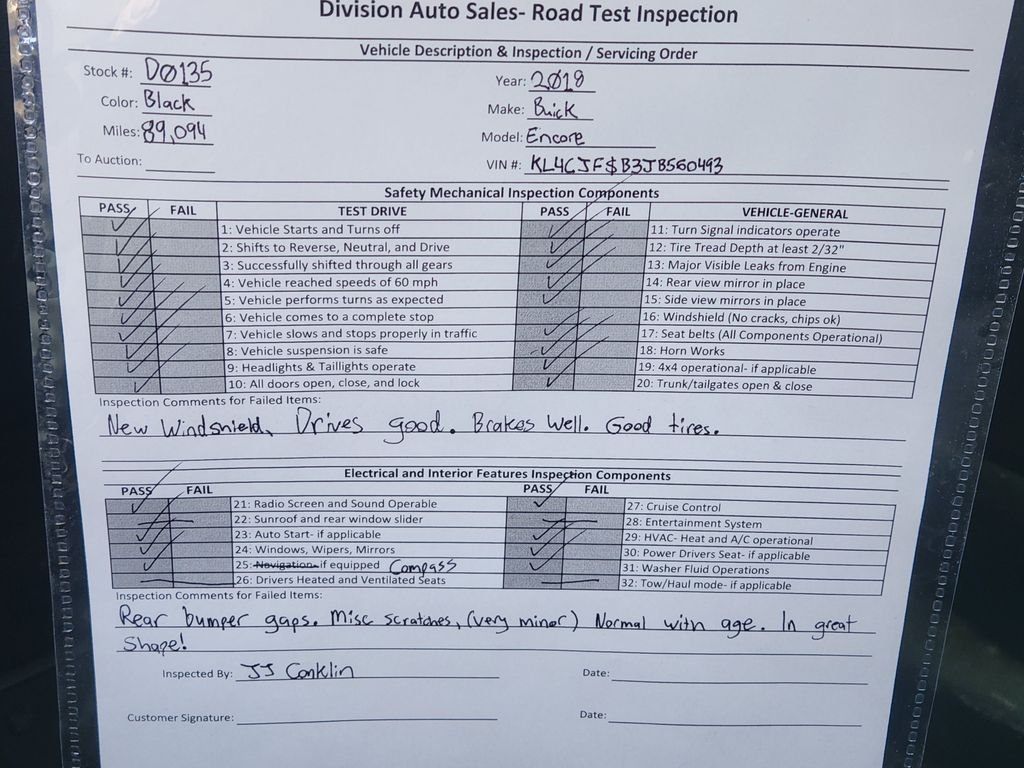 Division Auto Sales- Road Test Inspection
Vehicle Description & Inspection / Servicing Order
Stock #: DØ135 Year: 2Ø18
Color: Black Make: Buick
Miles: 89,094 Model: Encore
To Auction: VIN #: KL4CJF$B3JB560493
Safety Mechanical Inspection Components
PASS FAIL TEST DRIVE PASS FAIL VEHICLE-GENERAL
1: Vehicle Starts and Turns off 11: Turn Signal indicators operate
2: Shifts to Reverse, Neutral, and Drive 12: Tire Tread Depth at least 2/32"
3: Successfully shifted through all gears 13: Major Visible Leaks from Engine
4: Vehicle reached speeds of 60 mph 14: Rear view mirror in place
5: Vehicle performs turns as expected 15: Side view mirrors in place
6: Vehicle comes to a complete stop 16: Windshield (No cracks, chips ok)
7: Vehicle slows and stops properly in traffic 17: Seat belts (All Components Operational)
8: Vehicle suspension is safe 18: Horn Works
9: Headlights & Taillights operate 19: 4x4 operational- if applicable
10: All doors open, close, and lock 20: Trunk/tailgates open & close
Inspection Comments for Failed Items:
New Windshield, Drives good. Brakes Well. Good tires.
Electrical and Interior Features Inspection Components
PASS FAIL PASS FAIL
21: Radio Screen and Sound Operable 27: Cruise Control
22: Sunroof and rear window slider 28: Entertainment System
23: Auto Start- if applicable 29: HVAC- Heat and A/C operational
24: Windows, Wipers, Mirrors 30: Power Drivers Seat- if applicable
25: Navigation- if equipped Compass 31: Washer Fluid Operations
26: Drivers Heated and Ventilated Seats 32: Tow/Haul mode- if applicable
Inspection Comments for Failed Items:
Rear bumper gaps. Misc scratches, (very minor) Normal with age. In great
Shape!
Inspected By: JJ Conklin Date:
Customer Signature: Date: